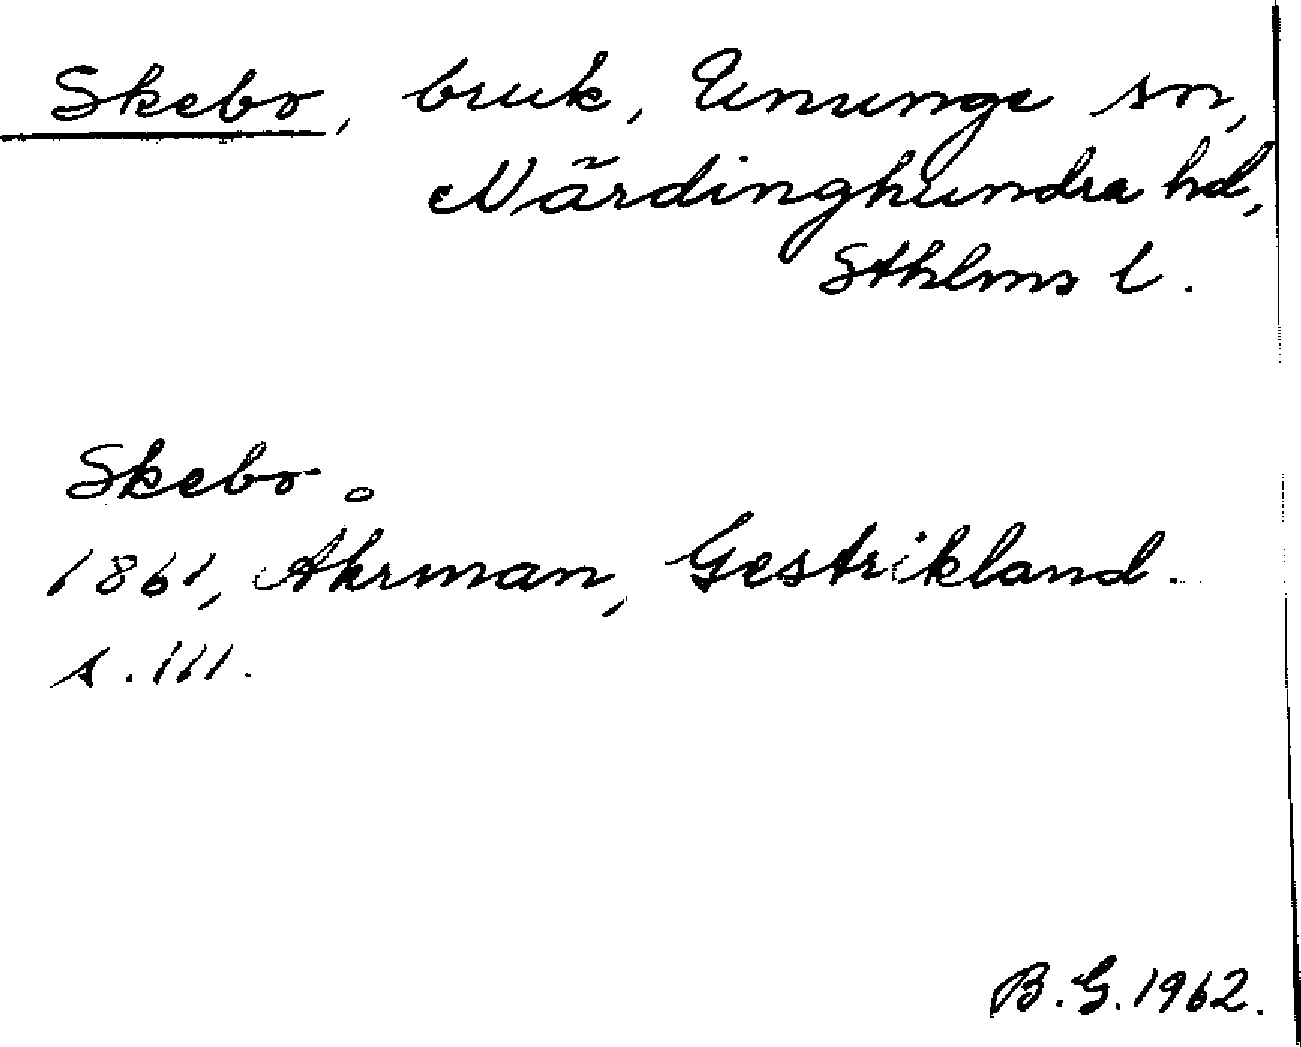 Skebo, bruk, Ununge sn,
Närdinghundra hd,
Sthlms l.
Skebo
1861, Åhrman, Gestrikland.
s. 111.
B. G. 1962.